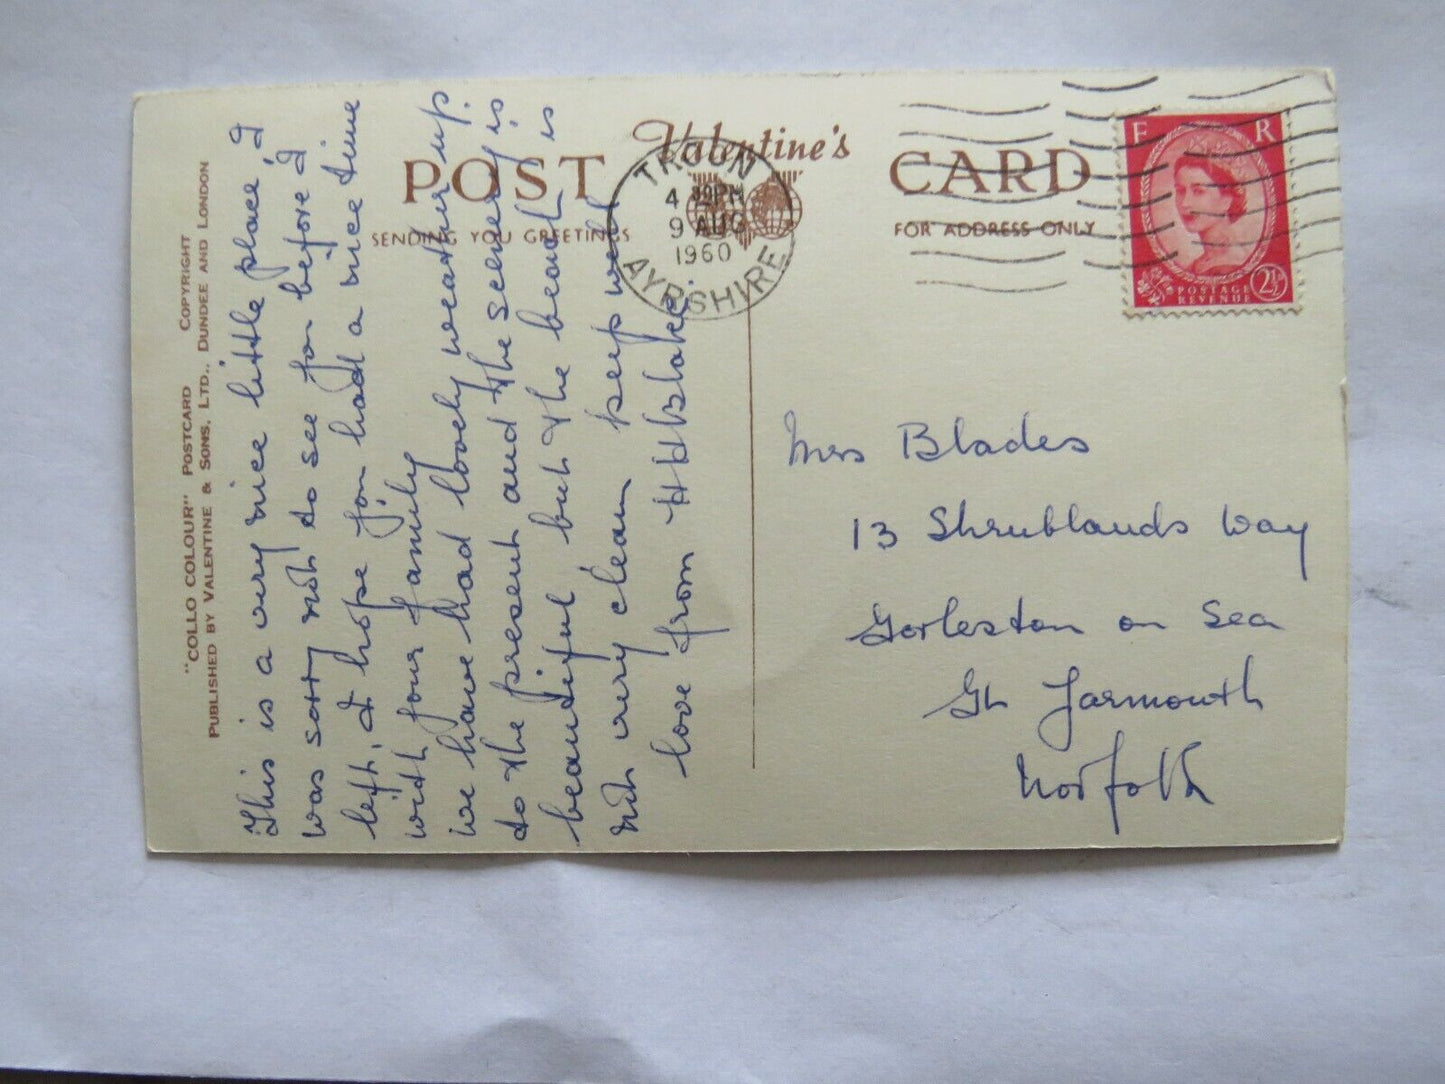 "COLLO COLOUR" POSTCARD COPYRIGHT
PUBLISHED BY VALENTINE & SONS, LTD., DUNDEE AND LONDON
Valentine's
POST CARD
SENDING YOU GREETINGS
FOR ADDRESS ONLY
TROON
4 30PM
9 AUG
1960
AYRSHIRE
E R
POSTAGE
REVENUE
2½D
This is a very nice little place, I
was sorry not to see you before I
left, I hope you had a nice time
with your family
we have had lovely weather up
to the present and the scenery is
beautiful but the beach is
not very clean keep well
love from H H Blake.
Mrs Blades
13 Shrublands Way
Gorleston on Sea
Gt Yarmouth
Norfolk